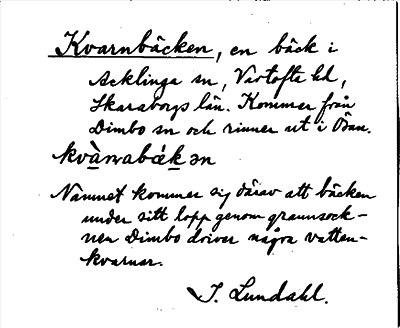 Kvarnbäcken, en bäck i
Acklinga sn, Vartofta hd,
Skaraborgs län. Kommer från
Dimbo sn och rinner ut i Ösan.
kvà̱rnabǽḵən
Namnet kommer sig därav att bäcken
under sitt lopp genom grannsock-
nen Dimbo driver några vatten-
kvarnar.
I. Lundahl.